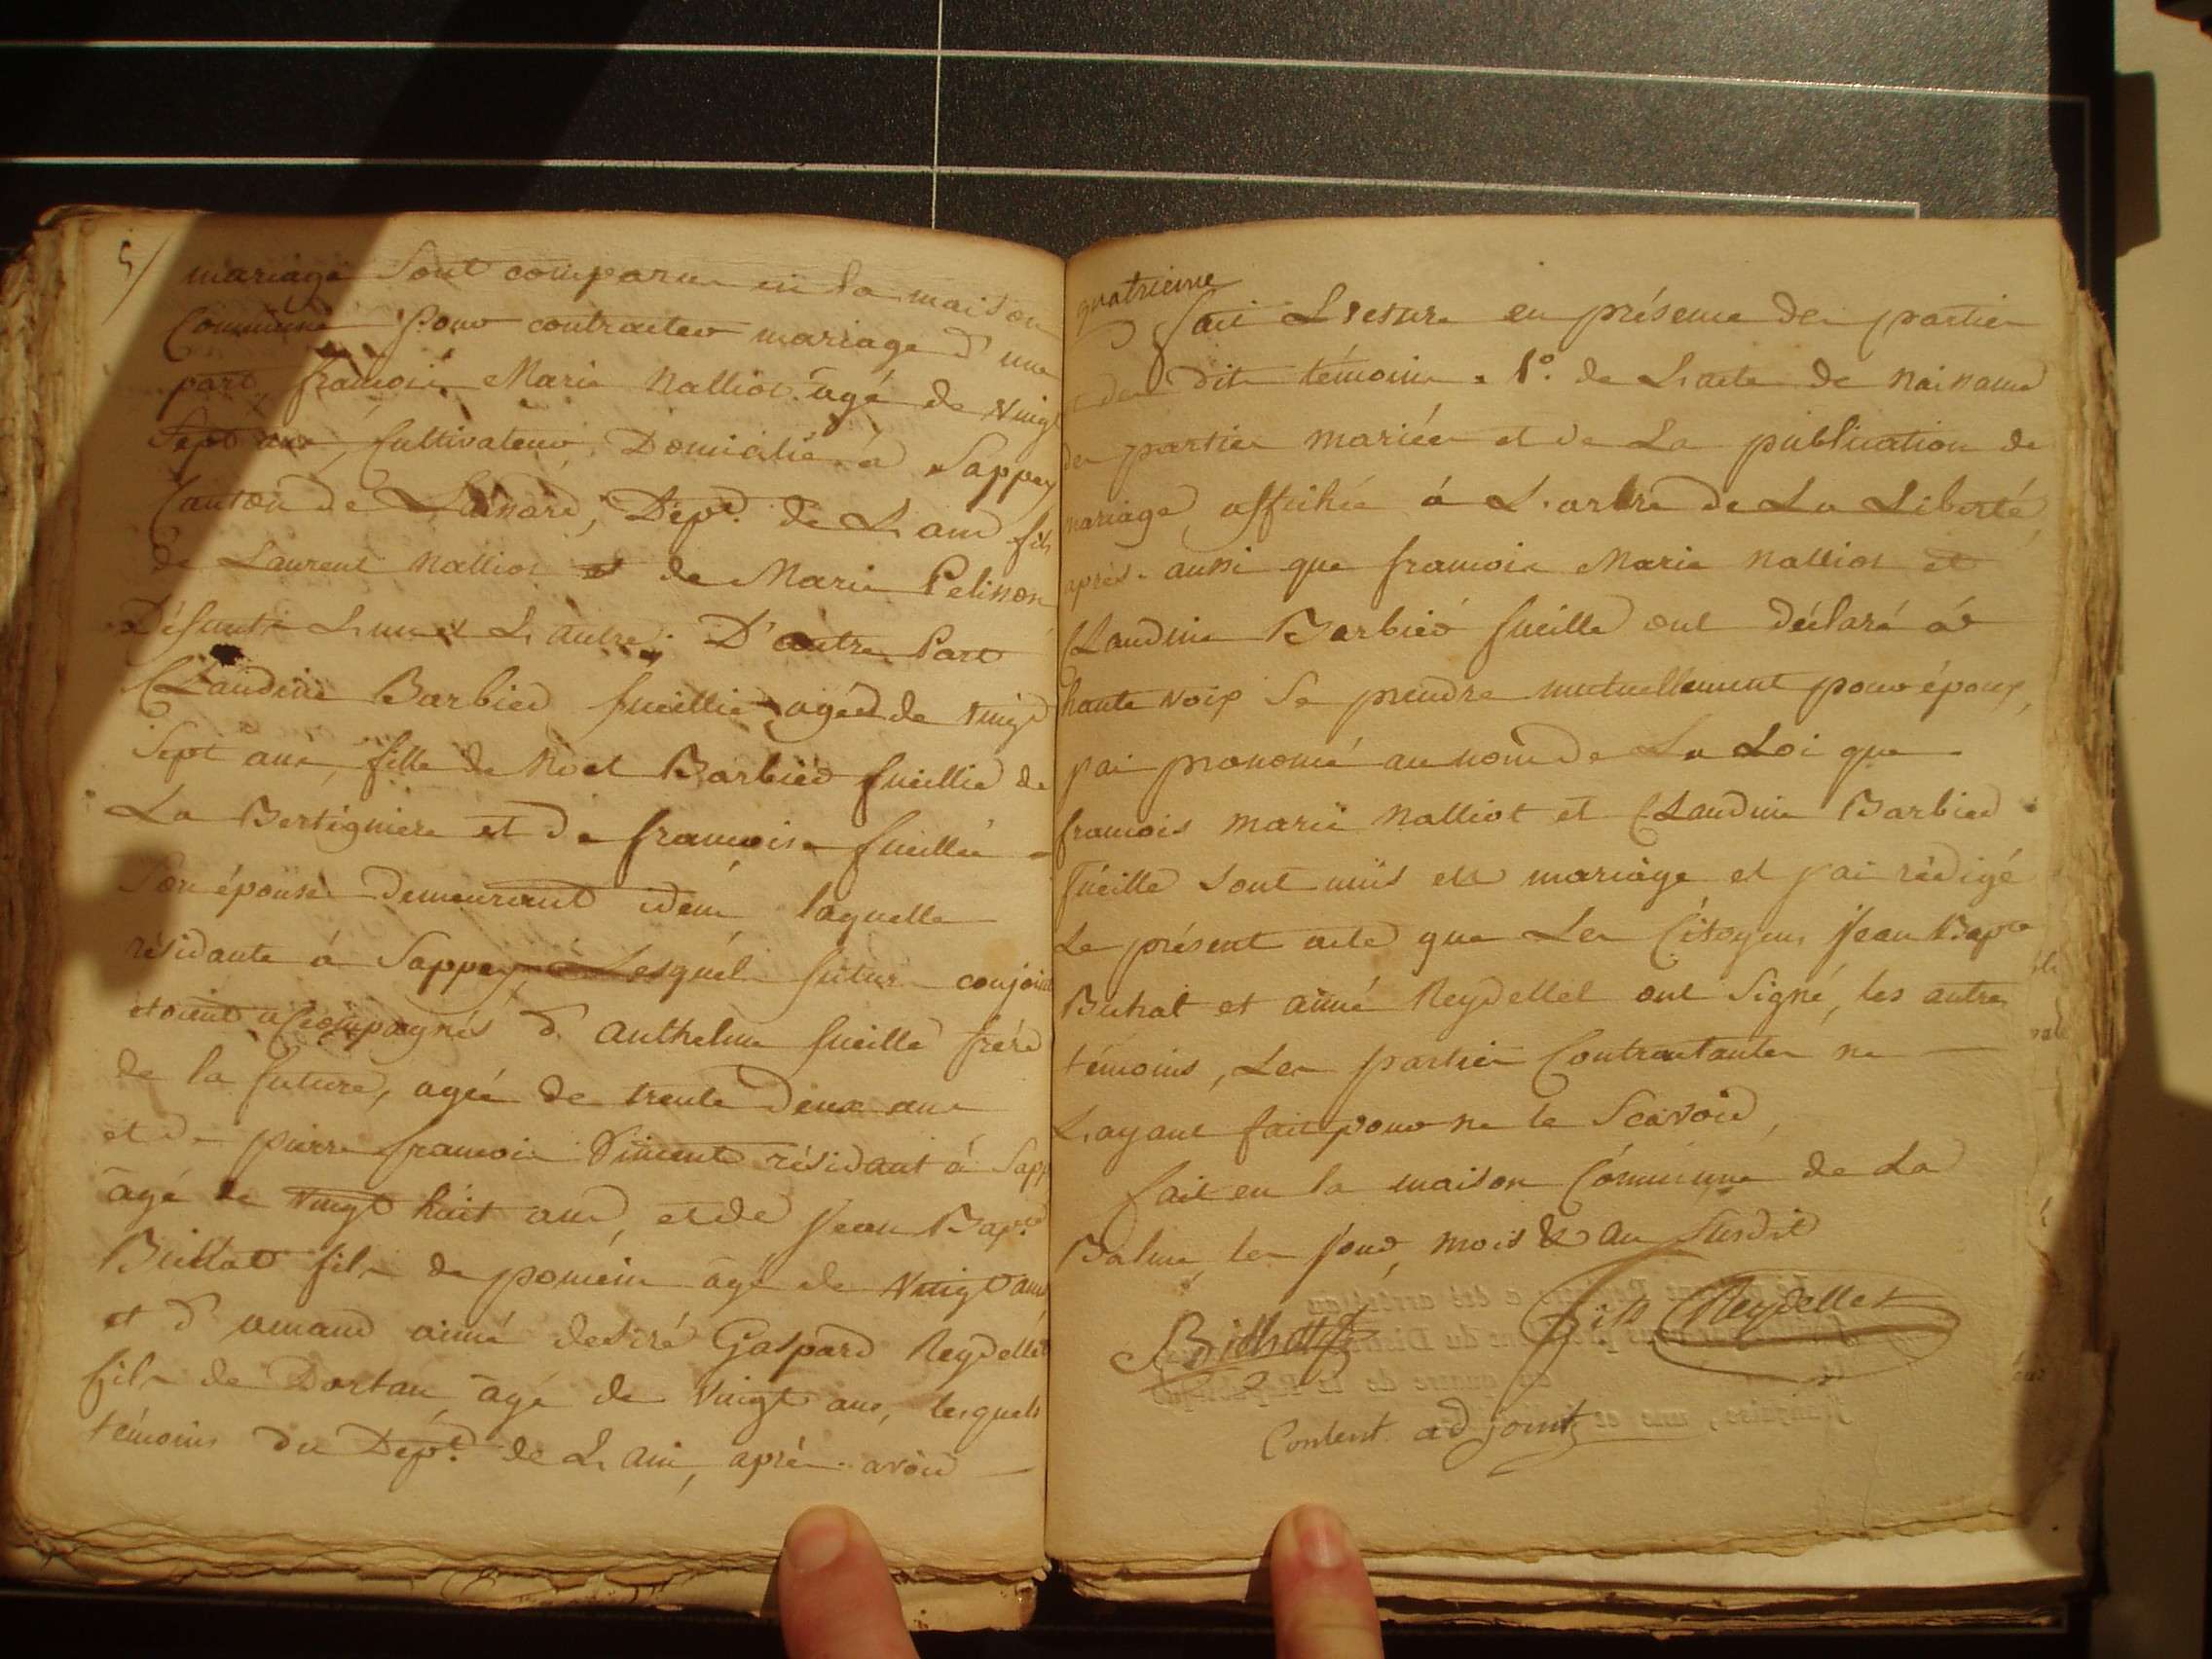 5/
mariage Sont comparu en la maison
Commune Pour contracter mariage d'une
part, francois Marie Nalliot agé de vingt
Sept ans, Cultivateur, Domicilié à Sappey
Canton de Dépt. de L'ain fils
de Laurent Nalliot et de Marie Pelisson
Défunts L'un et L'autre. D'autre Part
Claudine Barbier fueillie, agée de vingt
Sept ans, fille de Noel Barbier fueillie de
La Bertigniere et de francoise fueillie
Son épouse demeurant idem laquelle
résidante à Sappey, Lesquels futurs conjoint
etoient accompagnés d'anthelme fueille frère
de la future, agée de trente deux ans
et de pierre francois Vincent résidant à Sapp
agé de vingt huit ans, et de Jean Bapte.
Buthat fils de poncin agé de vingt ans
et d'amand aimé desiré Gaspard Reydellet
fils de Dortan agé de vingt ans, lesquels
témoins du Dépt. de L'ain, après avoir
quatrieme
fait Lecture en présence des parties
et des dits témoins. 1°. de L'acte de naissance
des parties mariées et de La publication de
mariage, affichée à L'arbre de La Liberté,
après aussi que francois Marie nalliot et
Claudine Barbier fueille ont déclaré à
haute voix Se prendre mutuellement pour époux,
j'ai prononcé au nom de La Loi que
francois marie Nalliot et Claudine Barbier
fueille sont unis en mariage et j'ai rédigé
Le présent acte que Les Citoyens Jean Bapte
Buthat et aimé Reydellet ont Signé, les autres
témoins, Les parties Contractantes ne
L'ayant fait pour ne le Scavoir,
fait en la maison Commune de La
Balme les jour, mois & an Susdit
Buthat fils Reydellet
Content adjoint